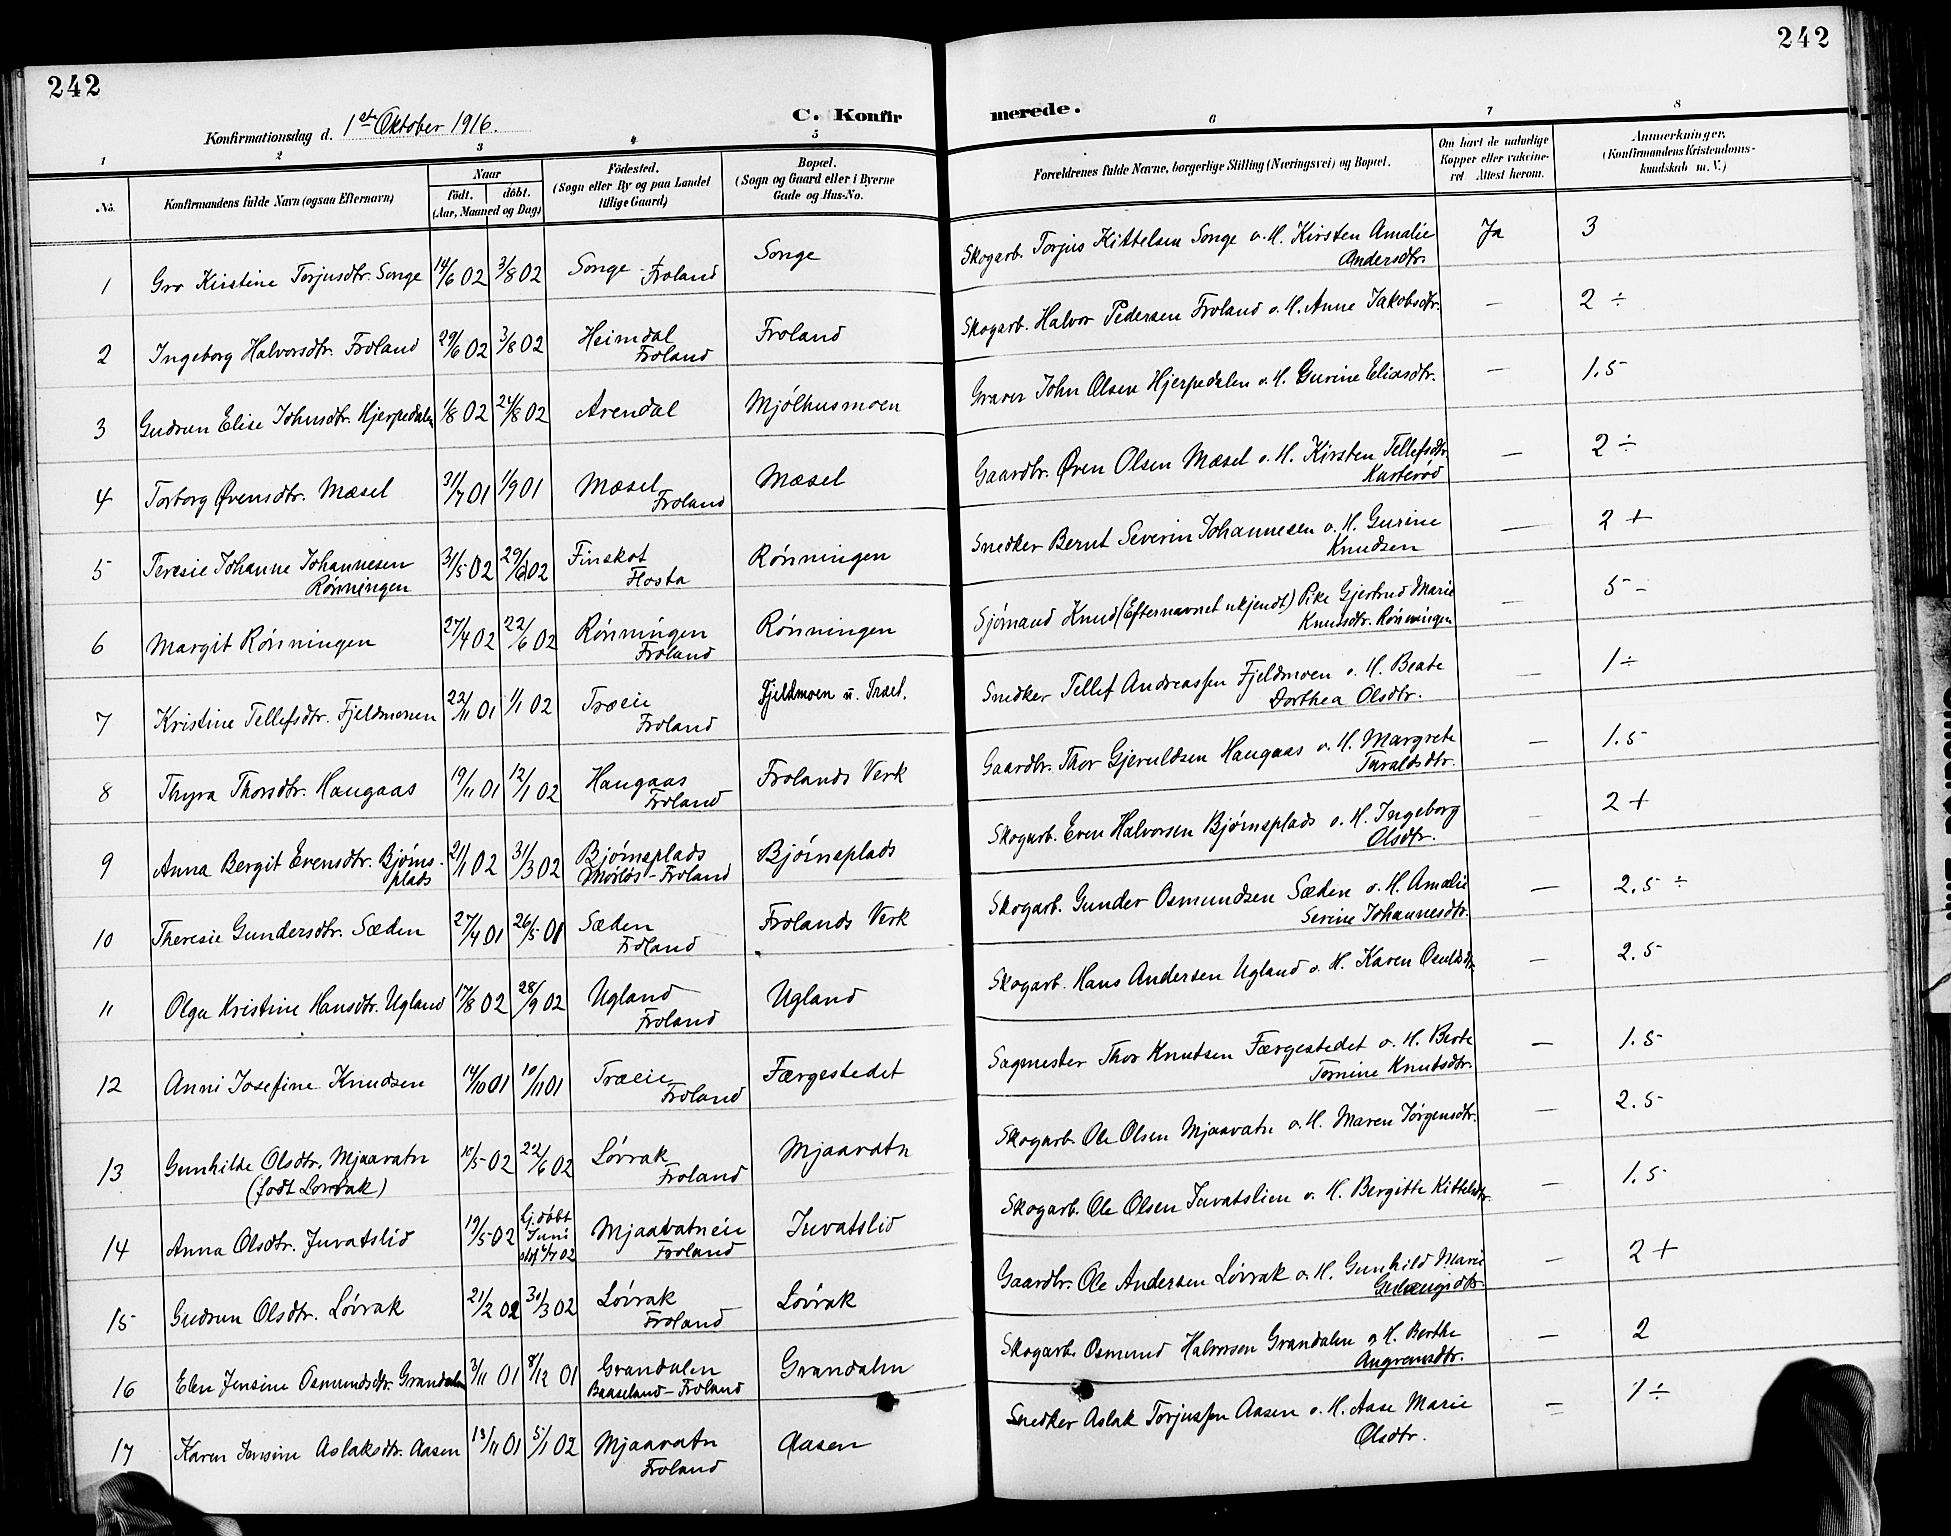 242
242
Konfirmationsdag d. 1ste Oktober 1916.
C. Konfirmerede.
1 2 3 4 5 6 7 8
No.
Konfirmandens fulde Navn (ogsaa Efternavn)
Naar
født. døbt.
(Aar, Maaned og Dag)
Fødested.
(Sogn eller By og paa Landet
tillige Gaard)
Bopæl.
(Sogn og Gaard eller i Byerne
Gade og Hus-No.
Forældrenes fulde Navne, borgerlige Stilling (Næringsvei) og Bopæl.
Om havt de naturlige
Kopper eller vakcine-
ret Attest herom.
Anmerkninger,
(Konfirmandens Kristendoms-
kundskab m. V.)
1 Gro Kirstine Torjusdtr. Songe 14/6 02 3/8 02 Songe - Froland Songe Skogarb. Torjus Kittelsen Songe o. H. Kirsten Amalie Andersdtr. Ja 3
2 Ingeborg Halvorsdtr. Froland 29/6 02 3/8 02 Heimdal Froland Froland Skogarb. Halvor Pedersen Froland o. H. Anne Jakobsdtr. — 2 ÷
3 Gudrun Elise Johnsdtr. Hjerpedalen 1/8 02 24/8 02 Arendal Mjölhusmoen Graver John Olsen Hjerpedalen o. H. Gurine Eliasdtr. — 1.5
4 Torborg Øvensdtr. Mæsel 31/7 01 1/9 01 Mæsel Froland Mæsel Gaardbr. Øven Olsen Mæsel o. H. Kirsten Tellefsdtr. — 2 ÷
5 Teresie Johanne Johannesen Rönningen 31/5 02 02 Flosta Rönningen Snedker Bernt Severin Johannesen o. H. Gurine Knudsen — 2 +
6 Margit Rönningen 27/4 02 22/6 02 Rönningen Froland Rönningen Sjömand Knud (Efternavnet ukjendt) Pike Gjertrud Marie Knudsdtr. Rönningen — 5 -
7 Kristine Tellefsdtr. Fjeldmoen 22/11 01 1/1 02 Træeie Froland Fjeldmoen u. Træet. Snedker Tellef Andreassen Fjeldmoen o. H. Beate Dorthea Olsdtr. — 1 ÷
8 Thyra Thorsdtr. Haugaas 19/11 01 12/1 02 Haugaas Froland Frolands Verk Gaardbr. Thor Gjeruldsen Haugaas o. H. Margrete Taraldsdtr. — 1.5
9 Anna Bergit Evensdtr. Björns-plads 21/1 02 31/3 02 Björnsplads - Froland Björnsplads Skogarb. Even Halvorsen Björnsplads o. H. Ingeborg Olsdtr. — 2 +
10 Theresie Gundersdtr. Sæden 27/4 01 26/5 01 Sæden Froland Frolands Verk Skogarb. Gunder Osmundsen Sæden o. H. Amalie Serine Johannesdtr. — 2.5 ÷
11 Olga Kristine Hansdtr. Ugland 17/8 02 28/9 02 Ugland Froland Ugland Skogarb. Hans Andersen Ugland o. H. Karen — 2.5
12 Anni Josefine Knudsen 14/10 01 10/11 01 Træeie Froland Færgestedet Sagmester Thor Knutsen Færgestedet o. H. Berte Tomine Knutsdtr. — 1.5
13 Gunhilde Olsdtr. Mjaavatn (født Lövrak) 10/5 02 22/6 02 Lövrak Froland Mjaavatn Skogarb. Ole Olsen Mjaavatn o. H. Maren Jörgensdtr. — 2.5
14 Anna Olsdtr. Juvatslid 19/5 02 Hj.döbt Juni 02 Mjaavatneie Froland Juvatslid Skogarb. Ole Olsen Juvatslien o. H. Bergitte Kittelsdtr. — 1.5
15 Gudrun Olsdtr. Lövrak 21/2 02 30/3 02 Lövrak Froland Lövrak Gaardbr. Ole Andersen Lövrak o. H. Gunhild Marie — 2 +
16 Elen Jensine Osmundsdtr. Grandalen 3/11 01 8/12 01 Grandalen Baaseland - Froland Grandalen Skogarb. Osmund Halvorsen Grandalen o. H. Berthe — 2
17 Karen Jensine Aslaksdtr. Aasen 13/11 01 5/1 02 Mjaavatn Froland Aasen Snedker Aslak Torjussen Aasen o. H. Aase Marie Olsdtr. — 1 ÷